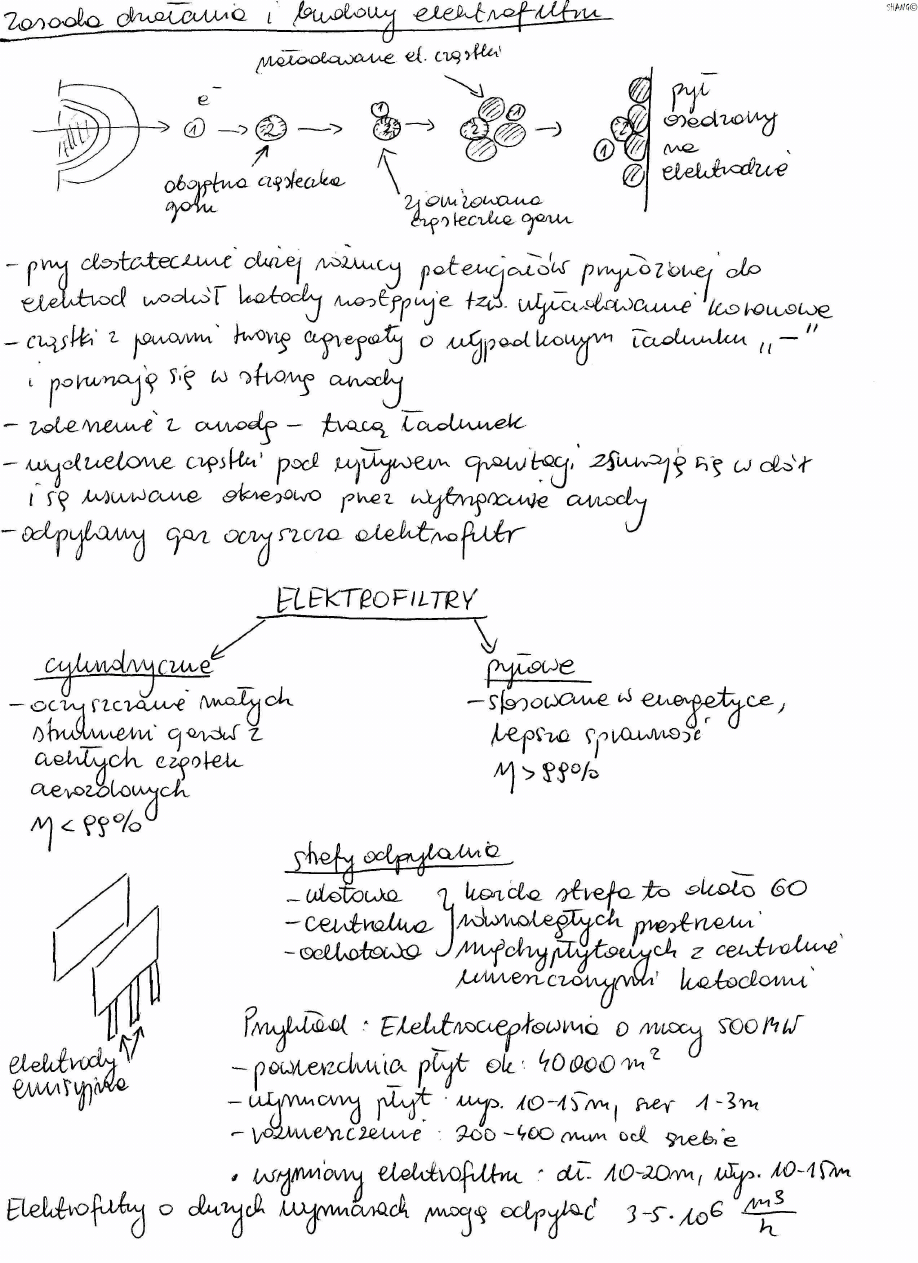 SHANG©
Zasada działania i budowy elektrofiltru
naładowane el. cząstki
e⁻
1
2
1
2
2
1
2
1
pył
osadzony
na
elektrodzie
obojętna cząsteczka
gazu
zjonizowana
cząsteczka gazu
- przy dostatecznie dużej różnicy potencjałów przyłożonej do
elektrod wokół katody następuje tzw. wyładowanie koronowe
- cząstki z jonami tworzą agregaty o wypadkowym ładunku „-”
i poruszają się w stronę anody
- zderzenie z anodą - tracą ładunek
- wydzielone cząstki pod wpływem grawitacji zsuwają się w dół
i są usuwane okresowo przez wytrząsanie anody
- odpylany gaz oczyszcza elektrofiltr
ELEKTROFILTRY
cylindryczne
- oczyszczanie małych
strumieni gazów z
ciekłych cząstek
aerozolowych
η < 99%
pyłowe
- stosowane w energetyce,
lepsza sprawność
η > 99%
strefy odpylania
- wlotowa
- centralna
- odlotowa
każda strefa to około 60
równoległych przestrzeni
międzypłytowych z centralnie
umieszczonymi katodami
elektrody
emisyjne
Przykład : Elektrociepłownia o mocy 500 MW
- powierzchnia płyt ok. 40 000 m²
- wymiary płyt : wys. 10-15m, szer 1-3m
- rozmieszczenie : 200-400 mm od siebie
• wymiary elektrofiltru : dł. 10-20m, wys. 10-15m
Elektrofiltry o dużych wymiarach mogą odpylać 3-5·10⁶ m³/h